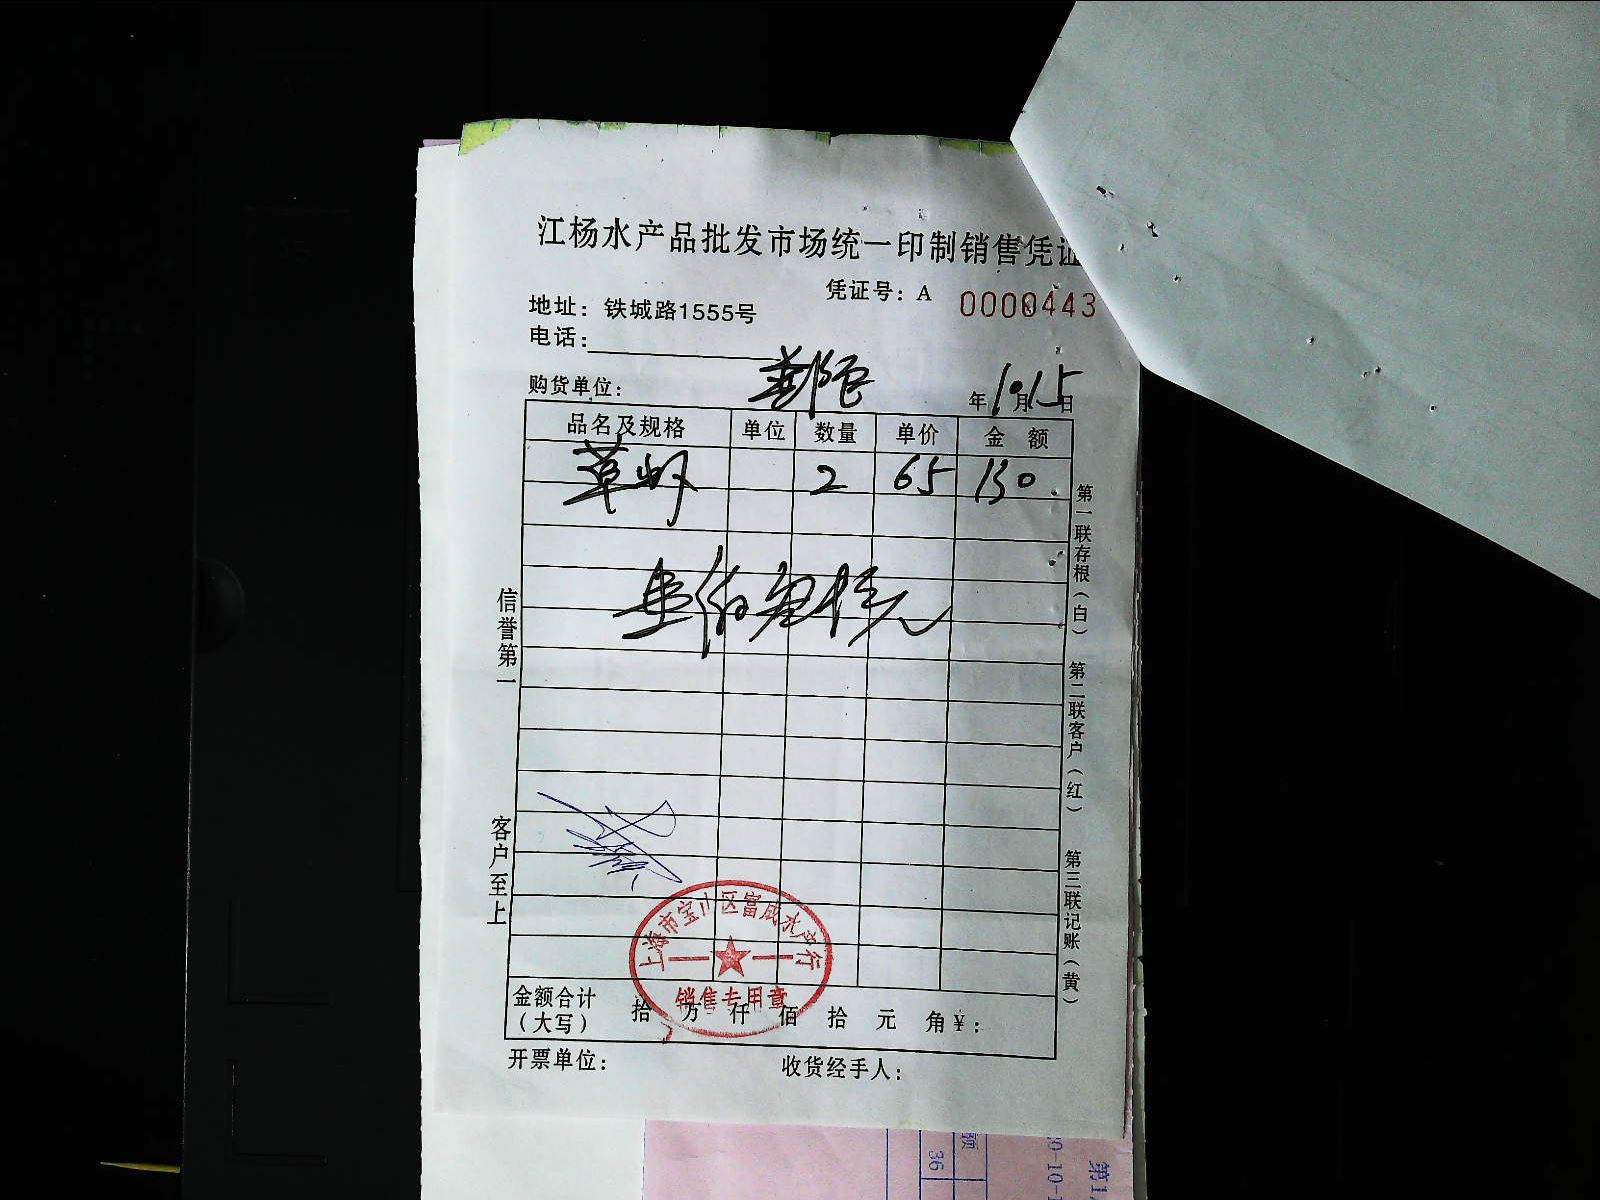 江杨水产品批发市场统一印制销售凭证
凭证号：A 0000443
地址：铁城路1555号
电话：
购货单位：
年10月15日
品名及规格 单位 数量 单价 金 额
草虾 2 65 130
壹佰叁拾元
信誉第一
客户至上
第一联存根（白）
第二联客户（红）
第三联记账（黄）
上海市宝山区富成水产行
销售专用章
金额合计（大写） 拾 万 仟 佰 拾 元 角 ¥：
开票单位：
收货经手人：
额
36
第1